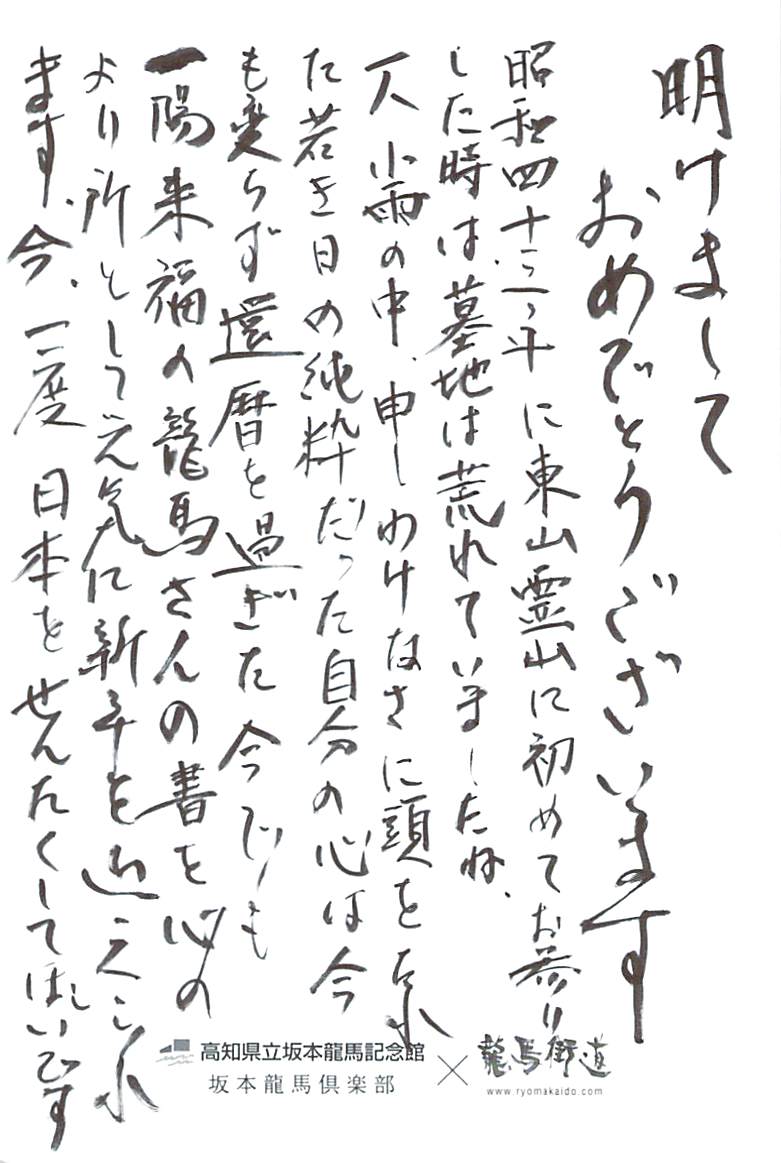 明けまして
おめでとうございます
昭和四十三年に東山霊山に初めてお参り
した時は墓地は荒れていましたね、
一人小雨の中、申しわけなさに頭をたれ
た若き日の純粋だった自分の心は今
も変らず還暦を過ぎた今でも
一陽来福の龍馬さんの書を心の
より所として元気に新年を迎えられ
ます、今、一度日本をせんたくしてほしいです
高知県立坂本龍馬記念館
坂本龍馬倶楽部
×
龍馬街道
www.ryomakaido.com